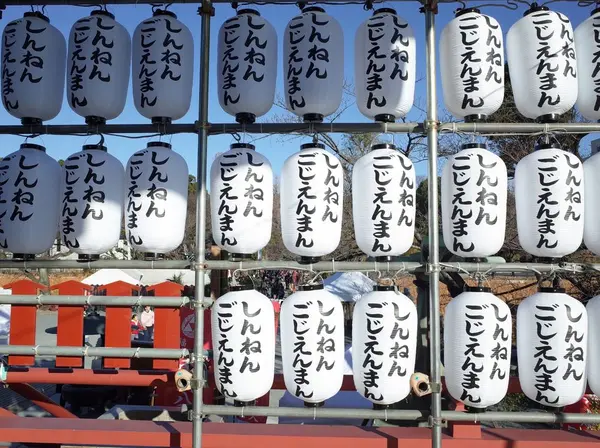 しんねん
しんねん
しんねん
ごじえんまん
しんねん
ごじえんまん
しんねん
ごじえんまん
しんねん
ごじえんまん
しんねん
ごじえんまん
しんねん
ごじえんまん
しんねん
しんねん
しんねん
しんねん
ごじえんまん
しんねん
ごじえんまん
しんねん
ごじえんまん
しんねん
ごじえんまん
しんねん
ごじえんまん
しんねん
ごじえんまん
しんねん
ごじえんまん
しんねん
ごじえんまん
しんねん
ごじえんまん
しんねん
ごじえんまん